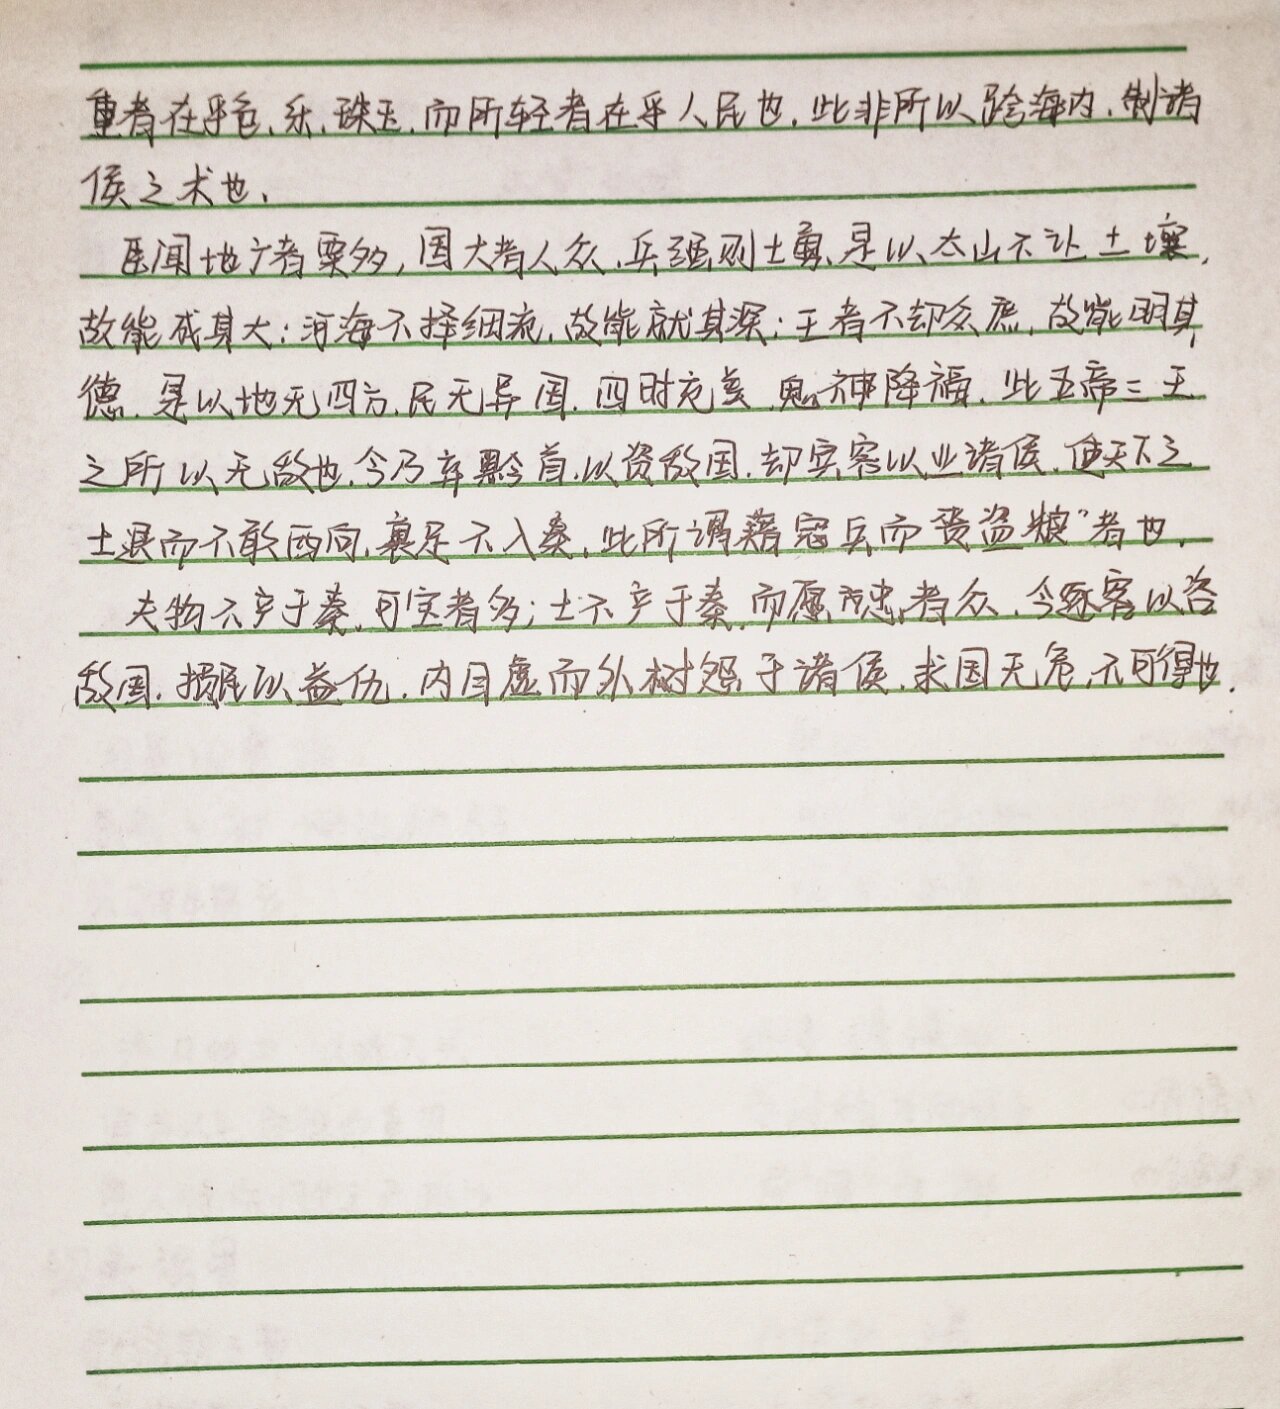 重者在乎色、乐、珠玉,而所轻者在乎人民也,此非所以跨海内、制诸
侯之术也。
臣闻地广者粟多,国大者人众,兵强则士勇,是以太山不让土壤,
故能成其大;河海不择细流,故能就其深;王者不却众庶,故能明其
德,是以地无四方,民无异国,四时充美,鬼神降福,此五帝三王
之所以无敌也,今乃弃黔首以资敌国,却宾客以业诸侯,使天下之
士退而不敢西向,裹足不入秦,此所谓藉寇兵而赍盗粮”者也。
夫物不产于秦,可宝者多;士不产于秦,而愿忠者众,今逐客以资
敌国,损民以益仇,内自虚而外树怨于诸侯,求国无危,不可得也。